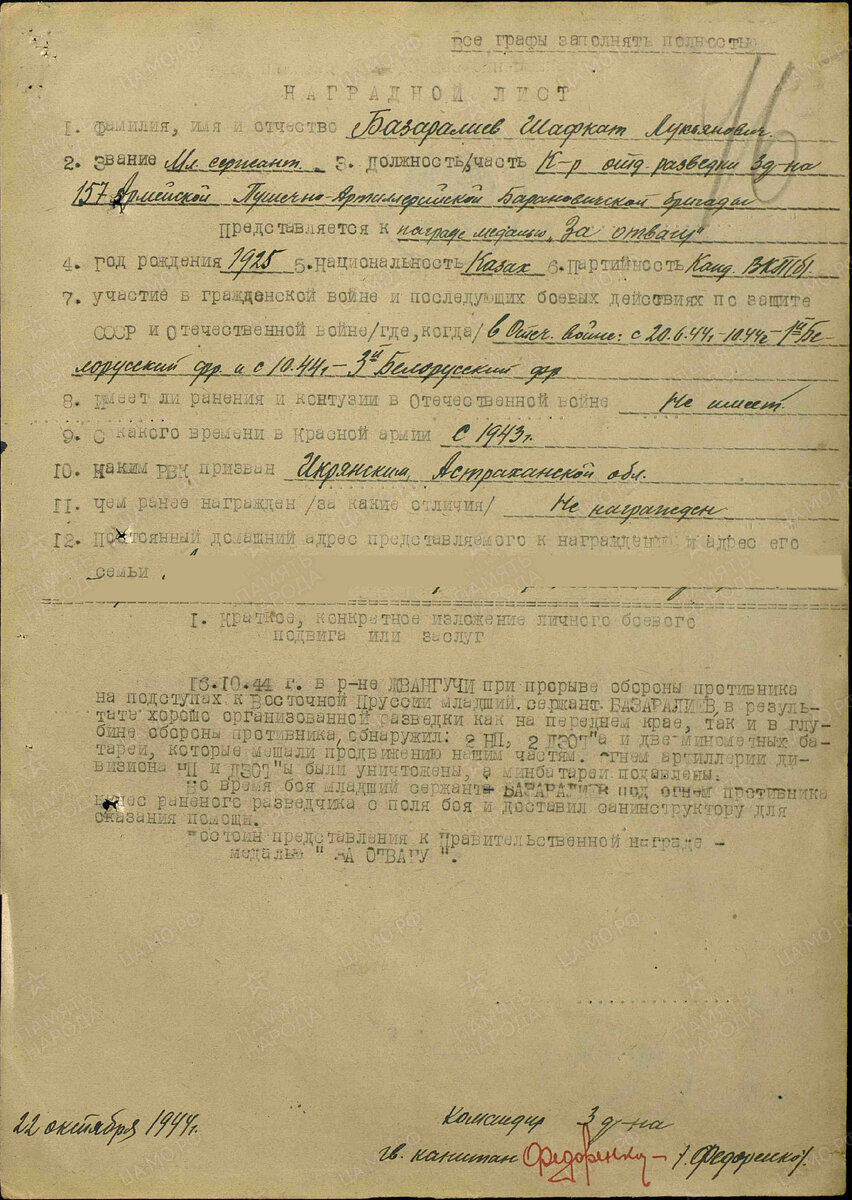 Все графы заполнять полностью
16
НАГРАДНОЙ ЛИСТ
1. Фамилия, имя и отчество Базаралиев Шафкат Лукьянович.
2. Звание Мл. сержант. 3. Должность, часть К-р отд. разведки 3 д-на
157 Армейской Пушечно-Артиллерийской Барановичской бригады
Представляется к награде медалью "За отвагу"
4. Год рождения 1925 5. Национальность Казах 6. Партийность Канд. ВКП(б).
7. Участие в гражданской войне и последующих боевых действиях по защите
СССР и Отечественной войне/где, когда/ в Отеч. войне: с 20.6.44г-10.44г-1й Бе-
лорусский фр. и с 10.44г-3й Белорусский фр
8. Имеет ли ранения и контузии в Отечественной войне Не имеет.
9. С какого времени в Красной армии с 1943г.
10. Каким РВК призван Икрянским, Астраханской обл.
11. Чем ранее награжден /за какие отличия/ Не награжден
12. Постоянный домашний адрес представляемого к награждению и адрес его
семьи
I. Краткое, конкретное изложение личного боевого
подвига или заслуг
16.10.44 г. в р-не ЖВАНГУЧИ при прорыве обороны противника
на подступах к Восточной Пруссии младший сержант БАЗАРАЛИЕВ, в резуль-
тате хорошо организованной разведки как на переднем крае, так и в глу-
бине обороны противника, обнаружил: 2 НП, 2 ДЗОТ"а и две минометных ба-
тареи, которые мешали продвижению нашим частям. Огнем артиллерии ди-
визиона НП и ДЗОТ"ы были уничтожены, а минбатареи подавлены.
Во время боя младший сержант БАЗАРАЛИЕВ под огнем противника
вынес раненого разведчика с поля боя и доставил санинструктору для
оказания помощи.
Достоин представления к Правительственной награде -
медалью " ЗА ОТВАГУ ".
22 октября 1944г.
Командир 3 д-на
гв. капитан Федоренко /Федоренко/.
ПАМЯТЬ НАРОДА
ЦАМО.РФ